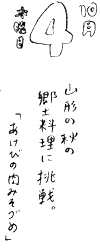 10月
4
木曜日
山形の秋の
郷土料理に挑戦。
「あけびの肉みそづめ」